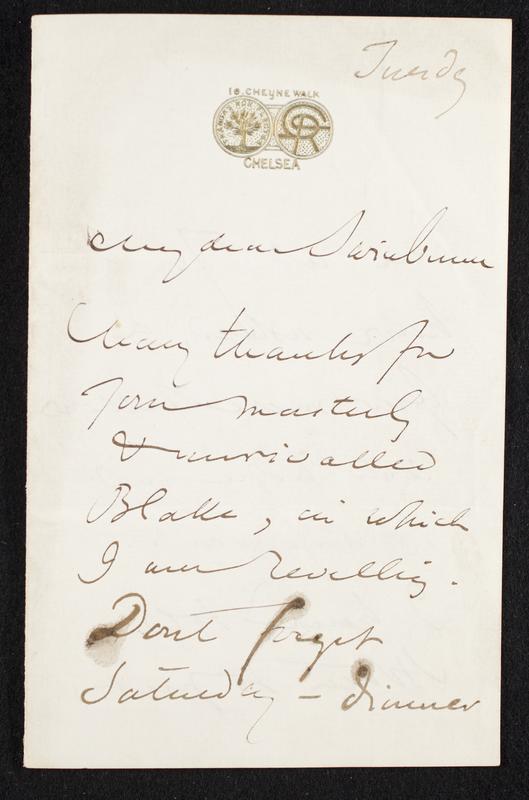 Tuesday
16. CHEYNE WALK
CHELSEA
My dear Swinburne
Many thanks for
your masterly
& unrivalled
Blake, in which
I am revelling.
Dont forget
Saturday – dinner